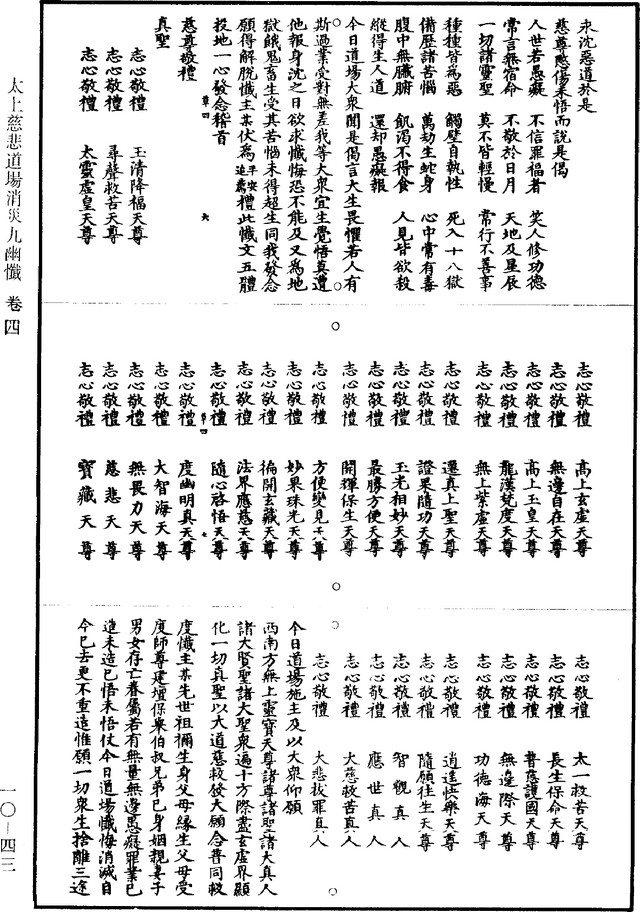 永沈惡道於是
慈尊愍傷未悟而說是偈
人世若愚癡　不信罪福者　笑人修功德
常言無宿命　不敬於日月　天地及星辰
一切諸靈聖　莫不皆輕慢　常行不善事
種種皆為惡　觸壁自執性　死入十八獄
備歷諸苦惱　萬劫生蛇身　心中常有毒
腹中無臟腑　飢渴不得食　人見皆欲殺
縱得生人道　還却愚癡報
今日道場大衆聞是偈言大生畏懼若人有
斯過業受對無差我等大衆宜生覺悟莫遭
他報身沈之日欲求懺悔恐不能及又為地
獄餓鬼畜生受其苦惱未得超生同我發念
願得解脫懺主某伏爲平安追薦禮此懺文五體
投地一心發念稽首
慈尊敬禮
真聖
志心敬禮　玉清降福天尊
志心敬禮　尋聲救苦天尊
志心敬禮　太靈虛皇天尊
志心敬禮　高上玄虛天尊
志心敬禮　無邊自在天尊
志心敬禮　高上玉皇天尊
志心敬禮　龍漢梵度天尊
志心敬禮　無上紫虛天尊
志心敬禮　還真上聖天尊
志心敬禮　證果隨功天尊
志心敬禮　玉光相妙天尊
志心敬禮　最勝方便天尊
志心敬禮　開輝保生天尊
志心敬禮　方便變見天尊
志心敬禮　妙果珠光天尊
志心敬禮　備開玄藏天尊
志心敬禮　法界應慈天尊
志心敬禮　隨心啓悟天尊
章四　七
志心敬禮　度幽明真天尊
志心敬禮　大智海天尊
志心敬禮　無畏力天尊
志心敬禮　慈悲天尊
志心敬禮　寶藏天尊
志心敬禮　太一救苦天尊
志心敬禮　長生保命天尊
志心敬禮　普慈護國天尊
志心敬禮　無邊際天尊
志心敬禮　功德海天尊
志心敬禮　逍遙快樂天尊
志心敬禮　隨願往生天尊
志心敬禮　智觀真人
志心敬禮　應世真人
志心敬禮　大慈救苦真人
志心敬禮　大悲拔罪真人
今日道場施主及以大衆仰願
西南方無上靈寶天尊諸尊諸聖諸大真人
諸大賢聖諸大聖衆遍十方際盡玄虛界顯
化一切真聖以大道慈救發大願念普同救
度懺主某先世祖禰生身父母緣生父母受
度師尊建壇保舉伯叔兄弟己身姻親妻子
男女存亡眷屬若有無量無邊愚癡罪業已
造未造已悟未悟仗今日道場懺悔消滅自
今已去更不重造惟願一切衆生捨離三途
章四　六
太上慈悲道場消災九幽懺　卷四
一〇－四三